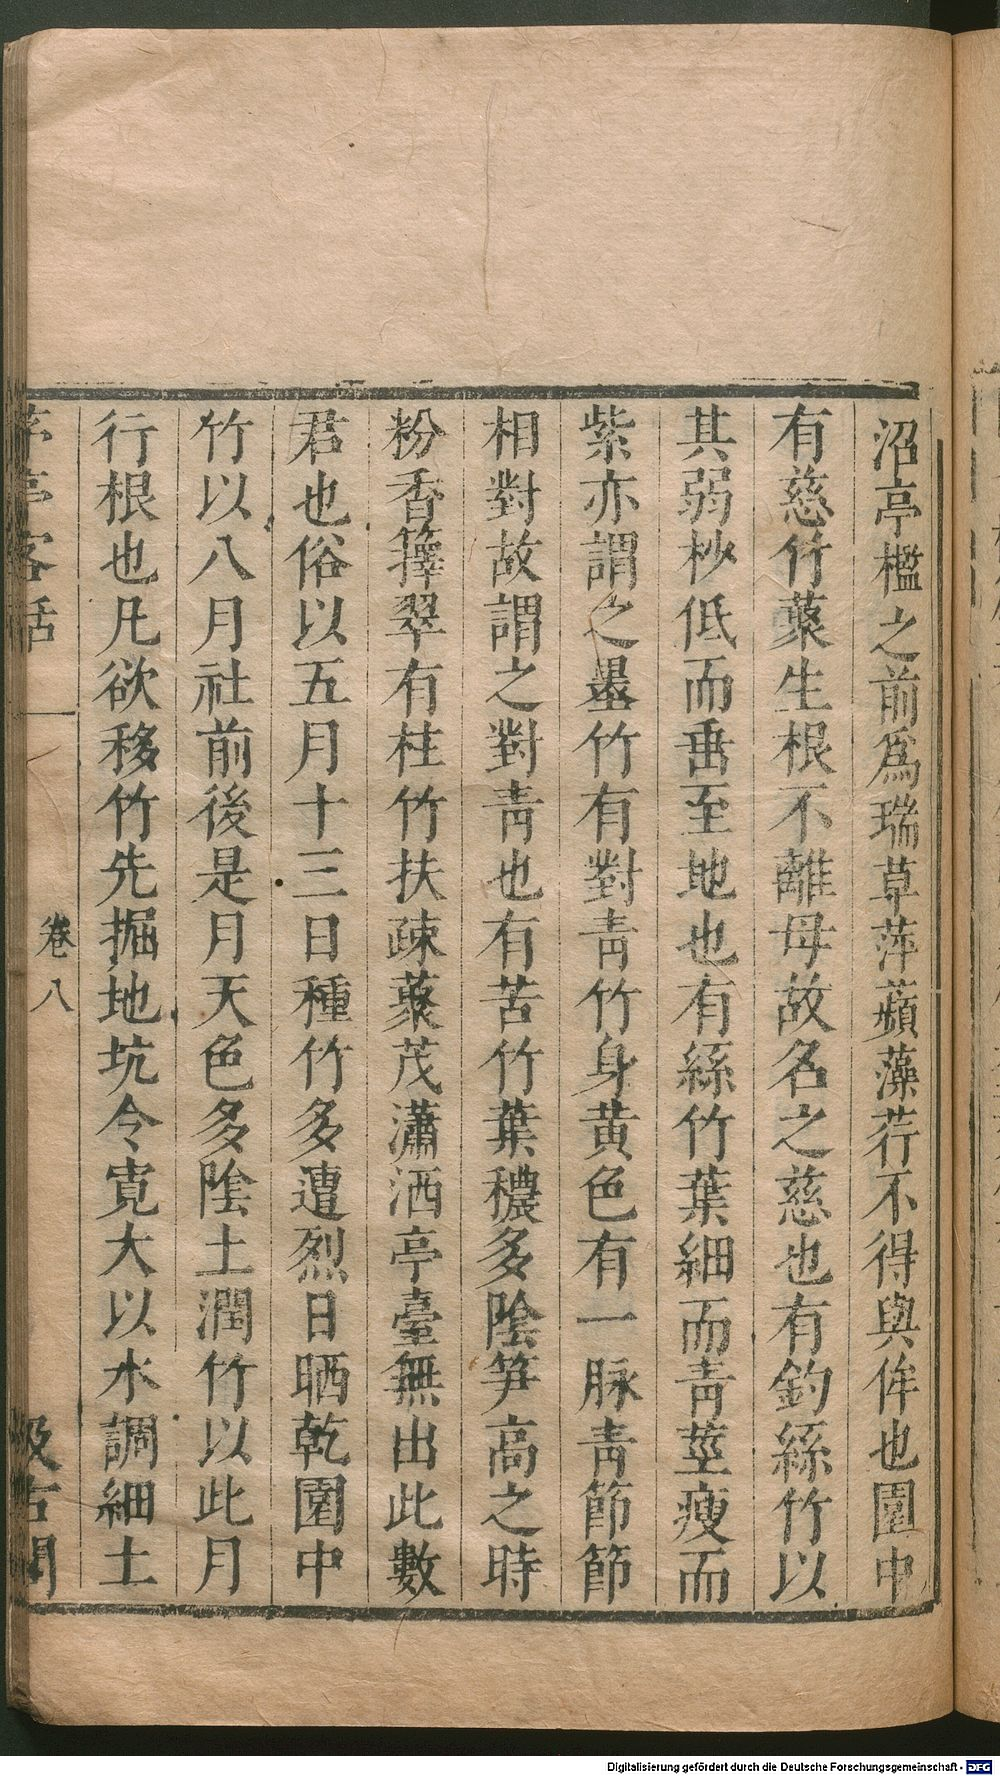 沼亭檻之前爲瑞草萍蘋藻荇不得與侔也園中
有慈竹藂生根不離母故名之慈也有釣絲竹以
其弱杪低而垂至地也有絲竹葉細而靑莖瘦而
紫亦謂之墨竹有對靑竹身黄色有一脉靑節節
相對故謂之對靑也有苦竹葉穠多陰笋高之時
粉香籜翠有桂竹扶疎藂茂瀟洒亭臺無出此數
君也俗以五月十三日種竹多遭烈日晒乾園中
竹以八月社前後是月天色多陰土潤竹以此月
行根也凡欲移竹先掘地坑令寛大以水調細土
茅亭客話 卷八 汲古閣
Digitalisierung gefördert durch die Deutsche Forschungsgemeinschaft - DFG